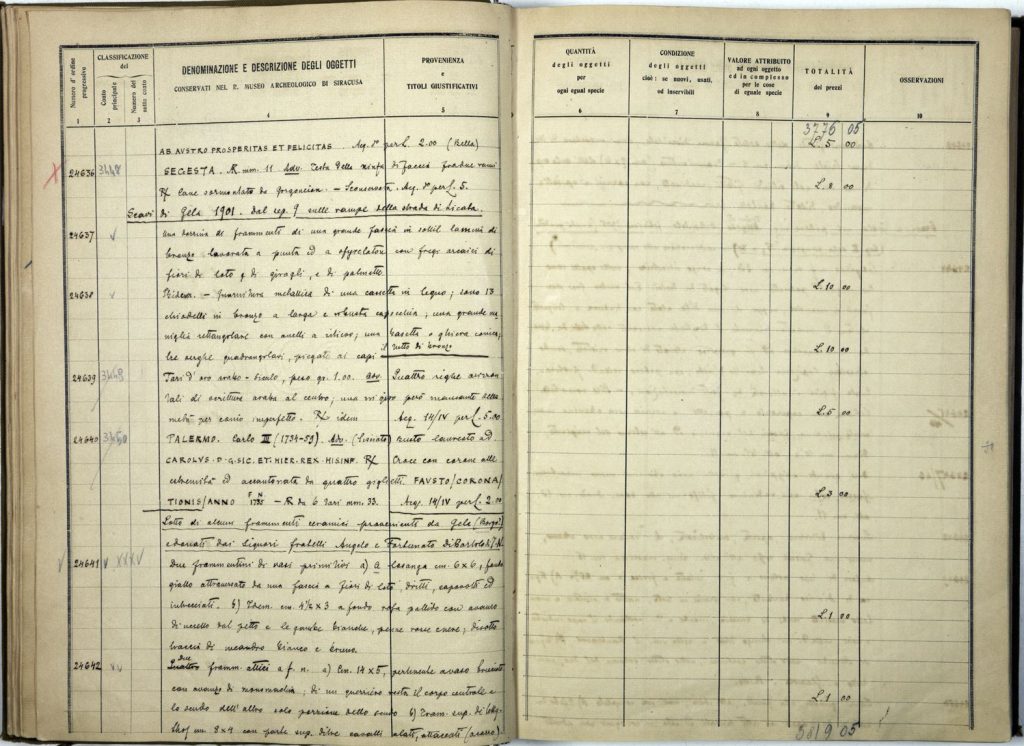 Numero d'ordine progressivo
CLASSIFICAZIONE
del
Conto principale
Numero del sotto conto
DENOMINAZIONE E DESCRIZIONE DEGLI OGGETTI
CONSERVATI NEL R. MUSEO ARCHEOLOGICO DI SIRACUSA
PROVENIENZA
e
TITOLI GIUSTIFICATIVI
1 2 3 4 5
AB AVSTRO PROSPERITAS ET FELICITAS Acq. per L. 2.00 (Bella)
24636 3448 SEGESTA. Æ mm. 11 Adv. Testa della ninfa di faccia fra due rami
R/ Cane sormontato da gorgoneion. – Sconservata. Acq. per L. 5.
Scavi di Gela 1901. Dal sep. 9 sulle rampe della strada di Licata.
24637 v Una dozzina di frammenti di una grande fascia in sottil lamina di
bronzo lavorata a punta ed a sfyrelaton con fregi arcaici di
fiori di loto e di girogli, e di palmette
24638 v Bidem. – Guarnitura metallica di una cassetta in legno; sono 13
chiodelli in bronzo a larga e robusta capocchia; una grande
niglia rettangolare con anelli a rilievo; una casetta o ghiera conica;
tre verghe quadrangolari, piegate ai capi il tutto di bronzo
24639 3449 Tari d'oro arabo-siculo, peso gr. 1.00. adv. Quattro righe orizzon
tali di scrittura araba al centro; una in giro però mancante della
metà per conio imperfetto. R/ idem Acq. 14/IV per L. 5.00
24640 3450 PALERMO. Carlo III (1734-59). Adv. busto laureato ad
CAROLVS. D. G. SIC. ET. HIER. REX. HIS INF. R/ Croce con corone alle
estremità ed accantonata da quattro giglietti FAUSTO/CORONA/
TIONIS/ANNO F N 1735 – Æ da 6 tari mm. 33. Acq. 14/IV per L. 2.00
Lotto di alcuni frammenti ceramici provenienti da Gela (Borgo)
e donati dai Signori fratelli Angelo e Fortunato Di Bartolo
24641 v XXXV Due frammentini di vasi primitivi a) a losanga cm. 6 x 6, fondo
giallo attraversato da una fascia a fiori di loto, dritti, capovolti ed
intrecciati. b) Idem. cm. 4½ x 3 a fondo rosa pallido con avanzo
di uccello dal petto e le gambe bianche, penne rosse e nere; disotto
traccia di meandro bianco e bruno.
24642 vv Due framm. attici a f. n. a) Cm. 14 x 5, pertinente a vaso bruciato
con avanzo di monomachia; di un guerriero resta il corpo centrale e
lo scudo dell'altro solo porzione dello scudo b) Fram. sup. di
cm. 8 x 4 con parte sup. di tre cavalli alati, attaccati (a carro).
QUANTITÀ
degli oggetti
per
ogni egual specie
CONDIZIONE
degli oggetti
cioè: se nuovi, usati,
od inservibili
VALORE ATTRIBUITO
ad ogni oggetto
ed in complesso
per le cose
di eguale specie
TOTALITÀ
dei prezzi
OSSERVAZIONI
6 7 8 9 10
3776 05
L. 5 00
L. 8 00
L. 10 00
L. 10 00
L. 5 00
L. 3 00
L. 1 00
L. 1 00
3819 05